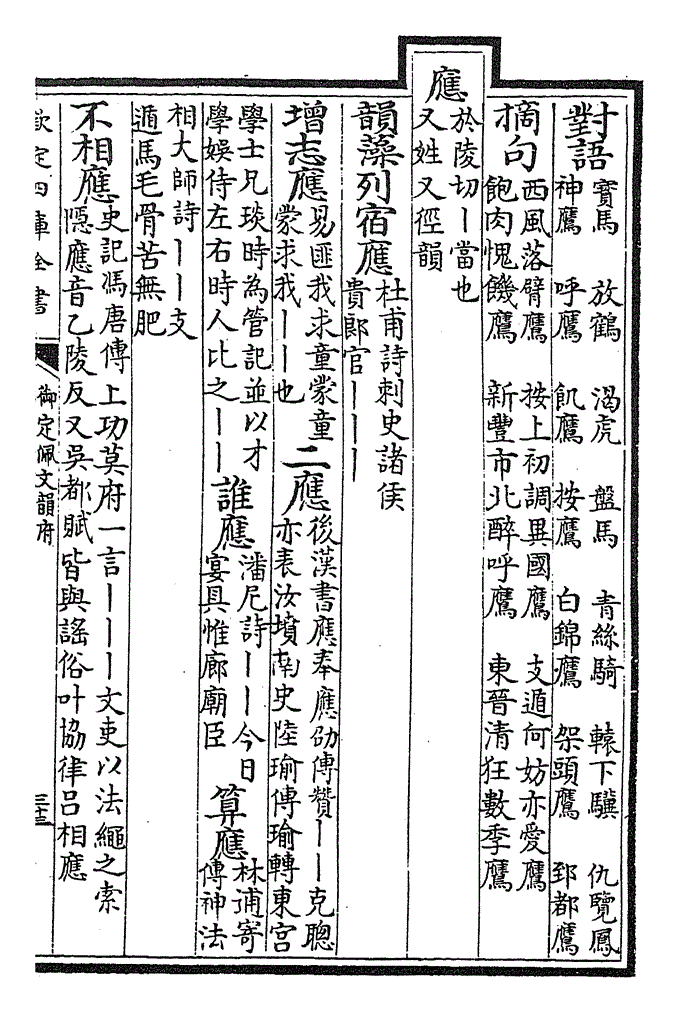 對語
寳馬　放鶴　渴虎　盤馬　青絲騎　轅下驥　仇覽鳳
神鷹　呼鷹　飢鷹　按鷹　白錦鷹　架頭鷹　郅都鷹
摘句
西風落臂鷹　按上初調異國鷹　支遁何妨亦愛鷹
飽肉愧饑鷹　新豐市北醉呼鷹　東晉清狂數季鷹
應
於陵切丨當也
又姓又徑韻
韻藻列宿應
杜甫詩刺史諸侯
貴郎官丨丨丨
增志應
易匪我求童蒙童
蒙求我丨丨也
二應
後漢書應奉應劭傳贊丨丨克聰
亦表汝墳南史陸瑜傳瑜轉東宫
學士兄琰時為管記並以才
學娱侍左右時人比之丨丨
誰應
潘尼詩丨丨今日
宴具惟廊廟臣
算應
林逋寄
傳神法
相大師詩丨丨支
遁馬毛骨苦無肥
不相應
史記馮唐傳上功莫府一言丨丨丨文吏以法繩之索
隱應音乙陵反又吳都賦皆與謠俗叶協律吕相應
欽定四庫全書
御定佩文韻府